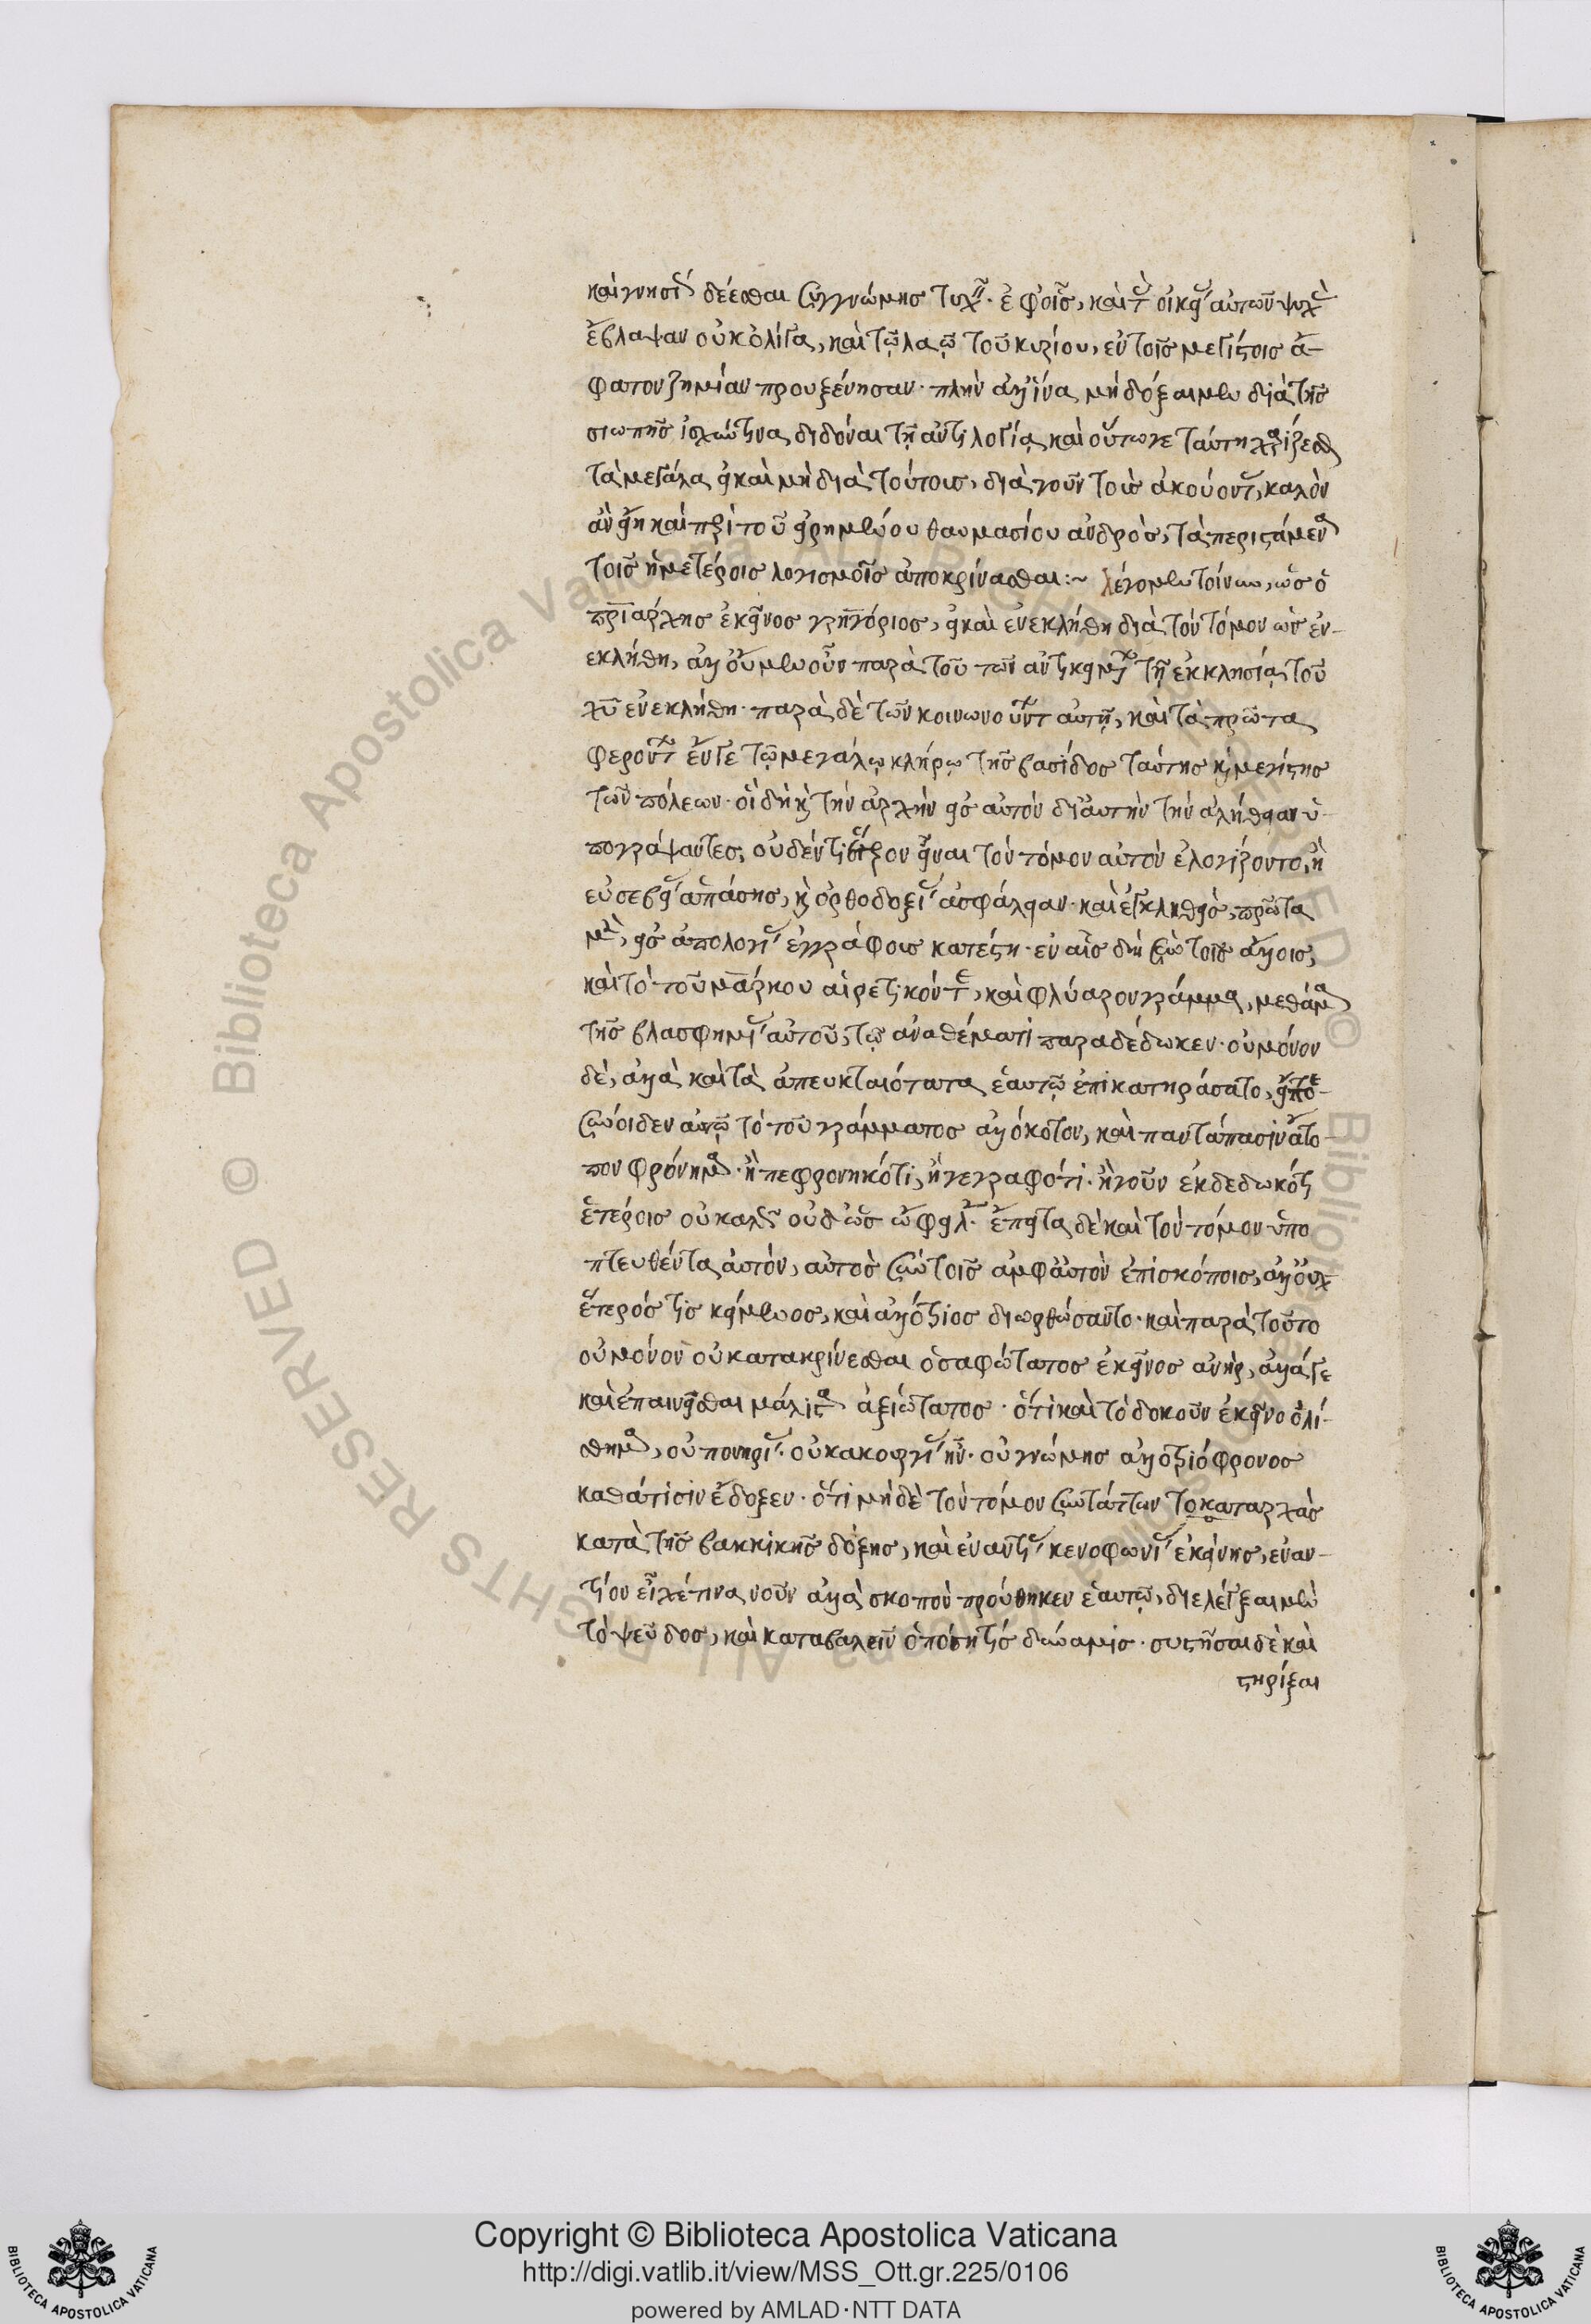 καὶ γνησί δέεσθαι συγγνώμης τυχ. ἐφ' οἷς, καὶ τ οἰκεί αὐτῶν ψυχ
ἔβλαψαν οὐκ ὀλίγα, καὶ τῷ λαῷ τοῦ κυρίου, ἐν τοῖς μεγίστοις ἄ-
φατον ζημίαν προυξένησαν· πλὴν ἀλλ' ἵνα μὴ δόξαιμεν διὰ τῆς
σιωπῆς ἰσχύν τινα διδόναι τῇ ἀντιλογίᾳ, καὶ οὕτωγε ταύτῃ χαρίζεσθ
τὰ μεγάλα εἰ καὶ μὴ διὰ τούτοις, διὰ γοῦν τοὺς ἀκούοντ, καλὸν
ἂν εἴη καὶ περὶ τοῦ εἰρημένου θαυμασίου ἀνδρὸς, τὰ περιστάμεν
τοῖς ἡμετέροις λογισμοῖς ἀποκρίνασθαι:~ λέγομεν τοίνυν, ὡς ὁ
πριάρχης ἐκεῖνος γρηγόριος, εἰ καὶ ἐνεκλήθη διὰ τὸν τόμον ὡς ἐν-
εκλήθη, ἀλλ' οὔμενουν παρὰ του τῶν ἀντικειμ τῇ ἐκκλησίᾳ τοῦ
χυ ἐνεκλήθη· παρὰ δὲ τῶν κοινωνούντ αὐτῇ, καὶ τὰ πρῶτα
φερόντ ἔν γε τῷ μεγάλῳ κλήρῳ τῆς βασίδος ταύτης καὶ μεγίστης
τῶν πόλεων· οἳ δὴ καὶ τὴν ἀρχὴν εἰς αὐτὸν δι' αὐτὴν τὴν ἀλήθειαν ὑ-
πογράψαντες, οὐδέν τι ἕτερον εἶναι τὸν τόμον αὐτὸν ἐλογίζοντο, ἢ
εὐσεβεί ἁπάσης, καὶ ὀρθοδοξί ἀσφάλειαν· καὶ ἐγκληθεὶς, πρῶτα
μὲν, εἰς ἀπολογί ἐγγράφοις κατέστη· ἐν αἷς δὴ σὺν τοῖς ἄλλοις,
καὶ τὸ τοῦ μάρκου αἱρετικόν τε, καὶ φλύαρον γράμμα, μεθάμ
τῆς βλασφημί αὐτοῦ, τῷ ἀναθέματι παραδέδωκεν· οὐ μόνον
δὲ, ἀλλὰ καὶ τὰ ἀπευκταιότατα ἑαυτῷ ἐπικατηράσατο,
σύνοιδεν αὑτῷ τὸ τοῦ γράμματος ἀλλόκοτον, καὶ παντάπασιν ἄτο-
πον φρόνημ· ἢ πεφρονηκότι, ἢ γεγραφότι· ἤγουν ἐκδεδωκότι
ἑτέροις οὐ καλ οὐδ' ὡς ὤφειλ. ἔπειτα δὲ καὶ τὸν τόμον ὑπο
πτευθέντα αὐτὸν, αὐτὸς σὺν τοῖς ἀμφ' αὐτὸν ἐπισκόποις, ἀλλ' οὐχ
ἕτερός τις κείμενος, καὶ ἀλλότριος διωρθώσαντο· καὶ παρὰ τοῦτο
οὐ μόνον οὐ κατακρίνεσθαι ὁ σαφώτατος ἐκεῖνος ἀνὴρ, ἀλλά γε
καὶ ἐπαινεῖσθαι μάλιστ ἀξιώτατος· ὅτι καὶ τὸ δοκοῦν ἐκεῖνο ὀλί-
σθημ, οὐ πονηρί· οὐ κακοφρ ἦν· οὐ γνώμης ἀλλοτριόφρονος
καθά τισιν ἔδοξεν· ὅτι μὴ δὲ τὸν τόμον συντάττων το καταρχὰς
κατὰ τῆς βεκκικῆς δόξης, καὶ ἐναντί κενοφωνί ἐκείνης, ἐναν-
τίον εἶχέ τινα νοῦν ἀλλὰ σκοπὸν προύθηκεν ἑαυτῷ, διελέγξαι μὲν
τὸ ψεῦδος, καὶ καταβαλεῖν ὁπόση τίς δύναμις· συστῆσαι δὲ καὶ
στηρίξαι
Copyright © Biblioteca Apostolica Vaticana
http://digi.vatlib.it/view/MSS_Ott.gr.225/0106
powered by AMLAD·NTT DATA